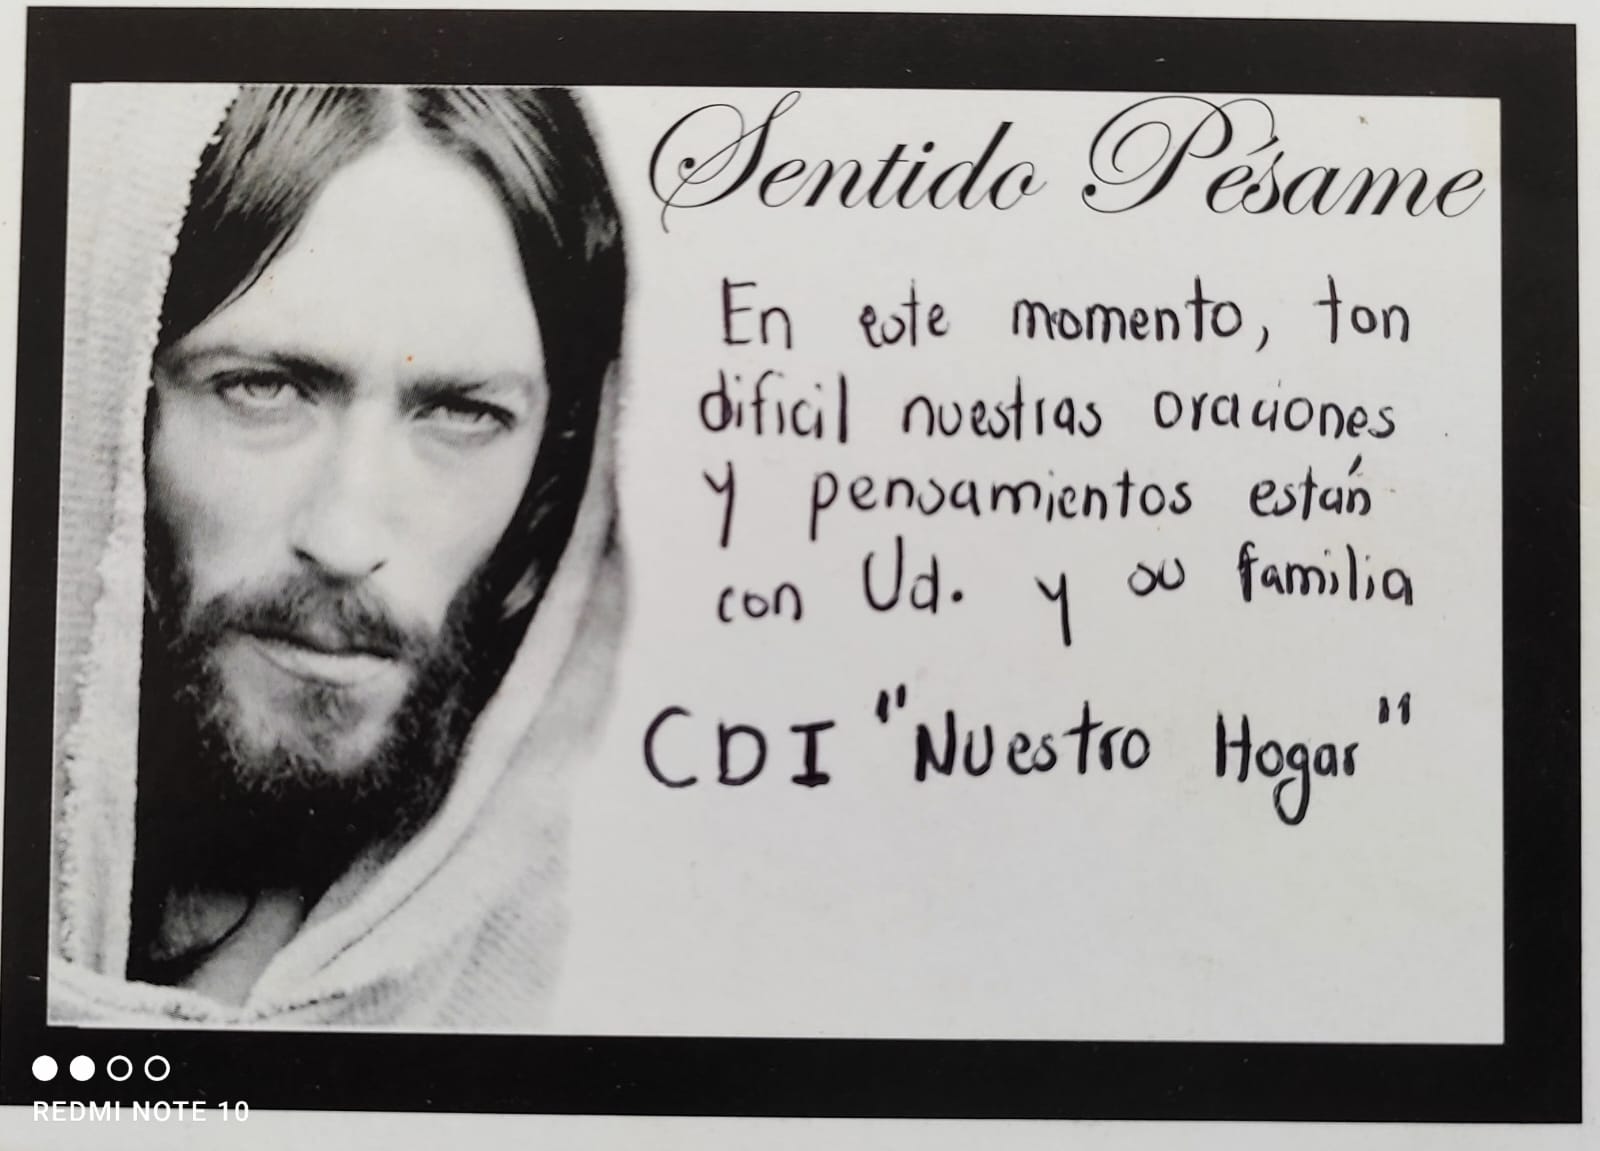 Sentido Pésame
En este momento, tan
dificil nuestras oraciones
y pensamientos están
con Ud. y su familia
CDI "Nuestro Hogar"
REDMI NOTE 10